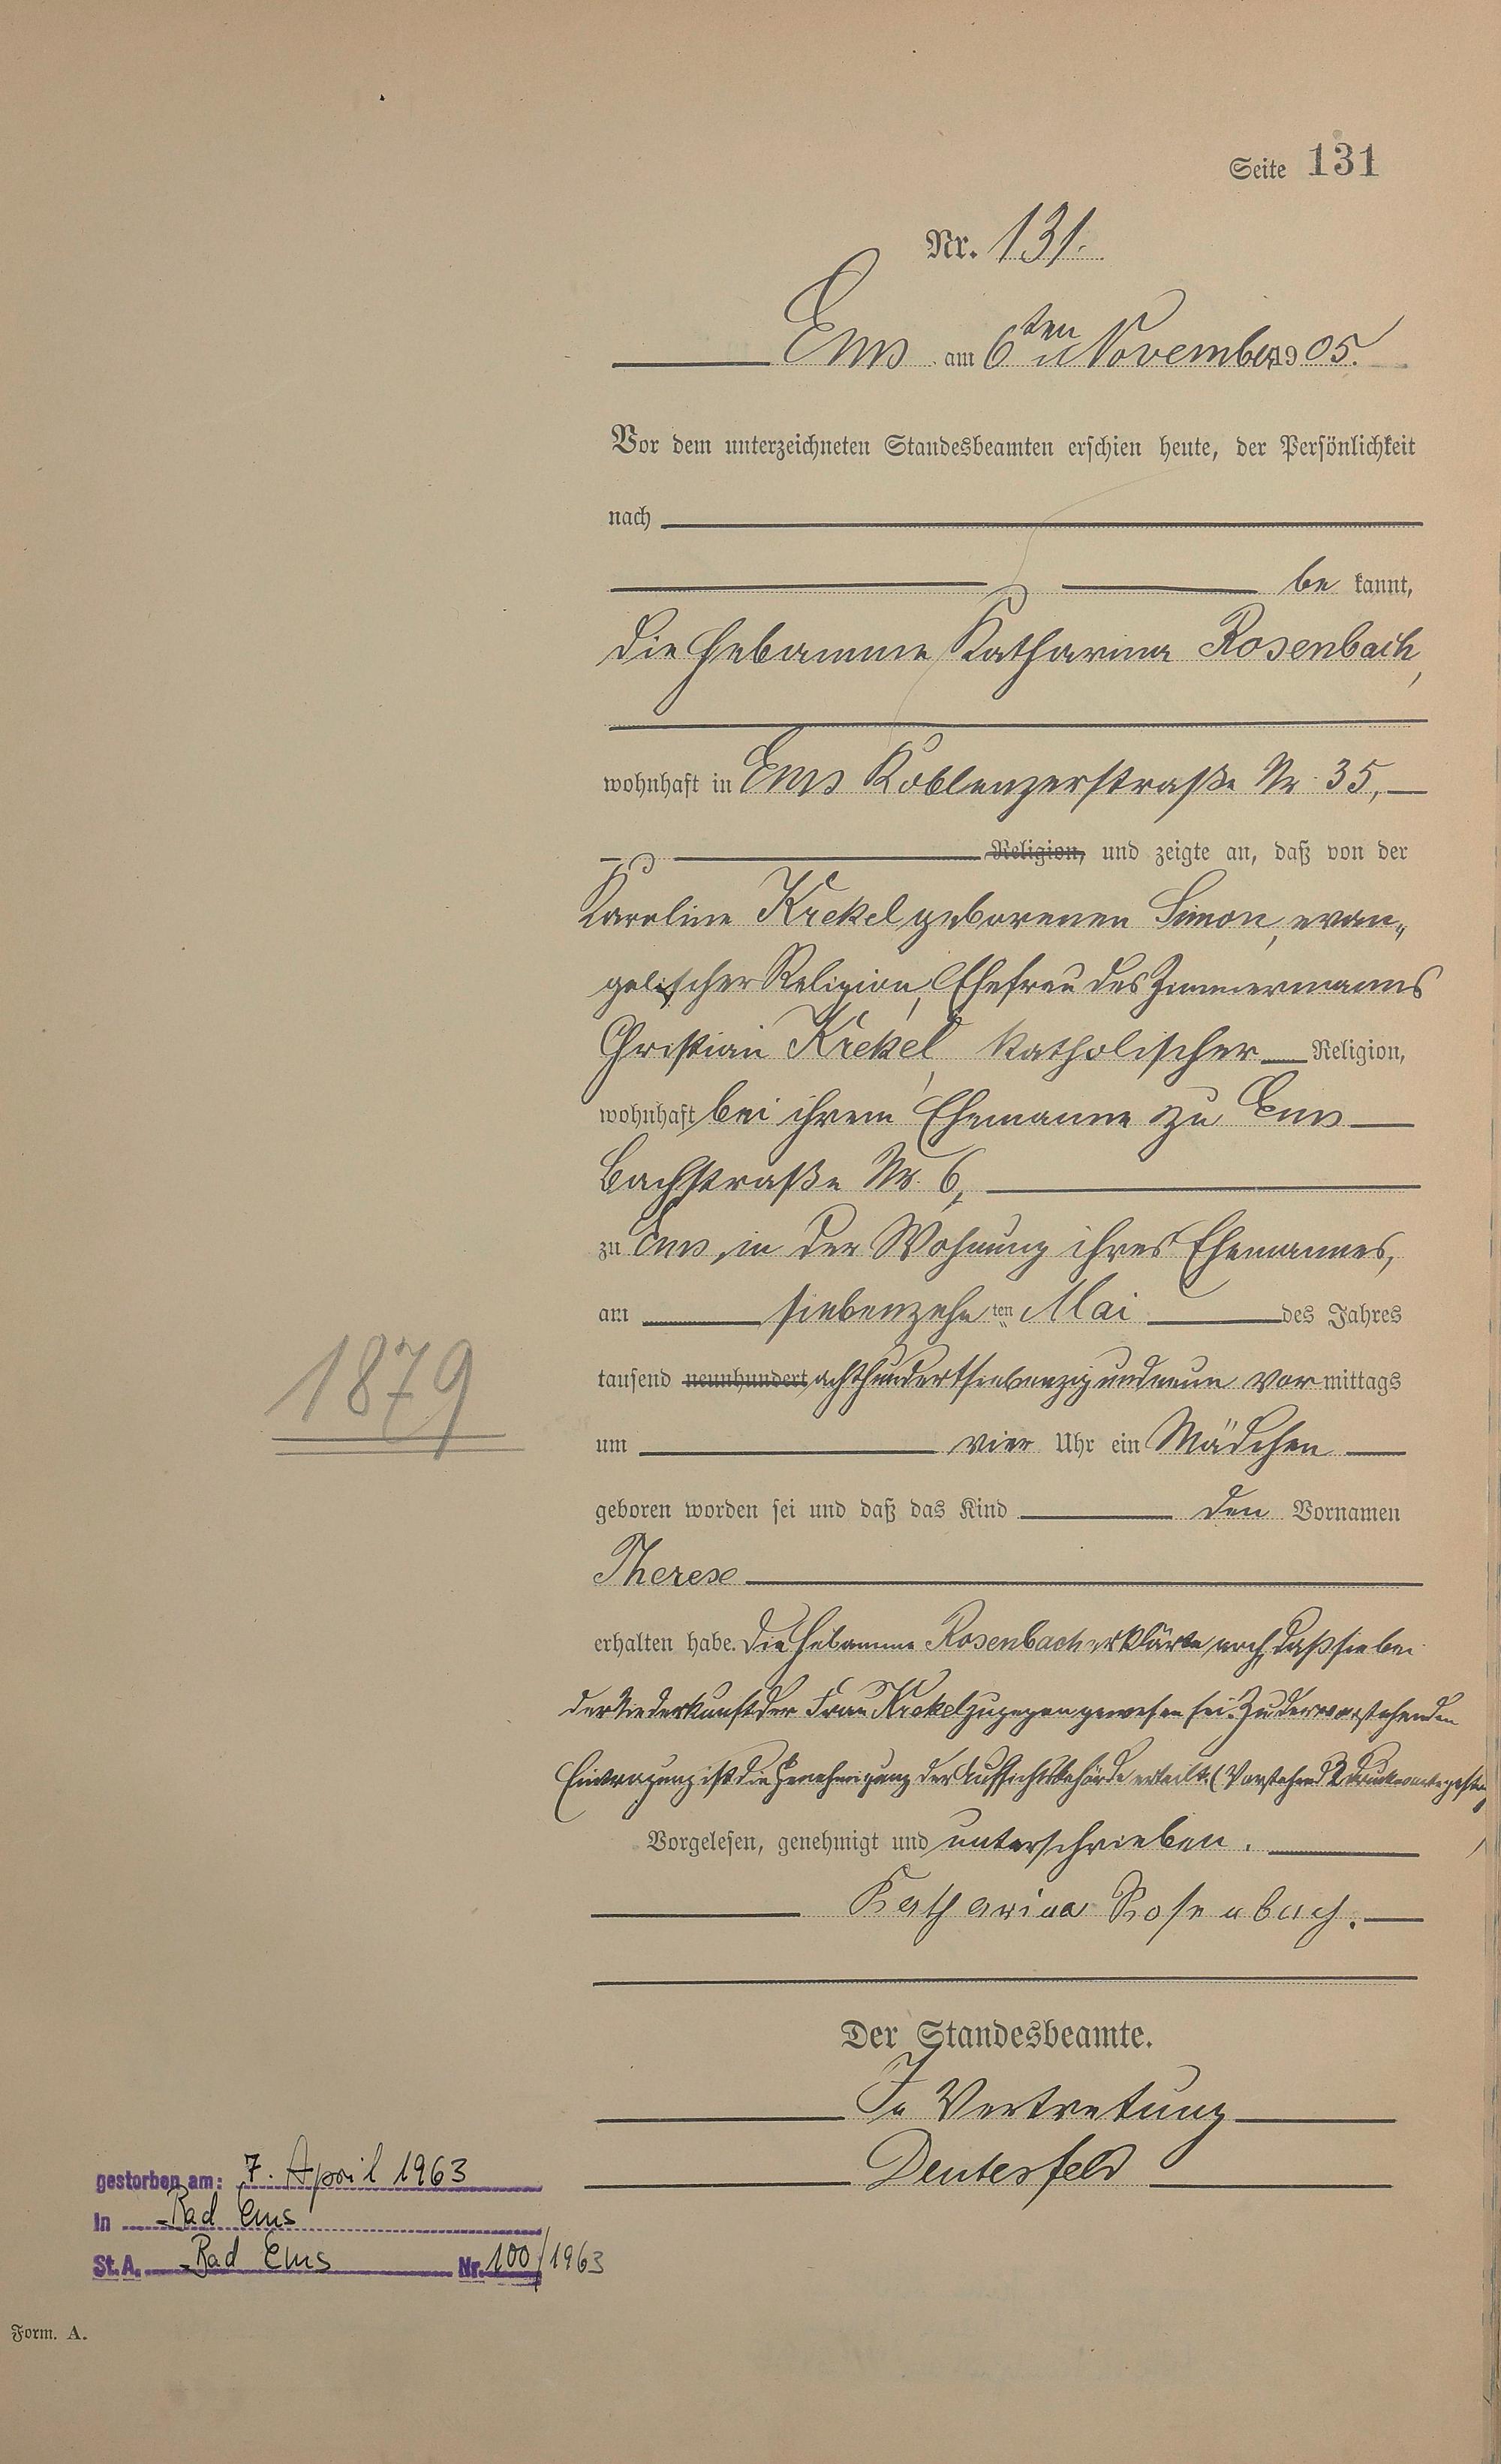 Seite 131
Nr. 131.
Ems am 6ten November 1905.
Vor dem unterzeichneten Standesbeamten erschien heute, der Persönlichkeit
nach
be kannt,
die Hebamme Katharina Rosenbach,
wohnhaft in Ems Koblenzerstraße Nr. 35,
Religion, und zeigte an, daß von der
Karoline Krekel geborenen Simon, evan„
gelischer Religion, Ehefrau des Zimmermanns
Christian Krekel, katholischer Religion,
wohnhaft bei ihrem Ehemanne zu Ems
Bachstraße Nr. 6,
zu Ems, in der Wohnung ihres Ehemannes,
am siebenzehn ten Mai des Jahres
1879
tausend neunhundert achthundertsiebenzigundneun vor mittags
um vier Uhr ein Mädchen
geboren worden sei und daß das Kind den Vornamen
Therese
erhalten habe. Die Hebamme Rosenbach erklärte noch, daß sie bei
der Niederkunft der Frau Krekel zugegen gewesen sei. Zu der vorstehenden
Eintragung ist die Genehmigung der Aufsichtsbehörde erteilt. (Vorstehend 2 Druckworte gestr.
Vorgelesen, genehmigt und unterschrieben.
Katharina Rosenbach.
Der Standesbeamte.
In Vertretung
Deutesfeld
gestorben am: 7. April 1963
in Bad Ems
St. A. Bad Ems Nr. 100/1963
Form. A.